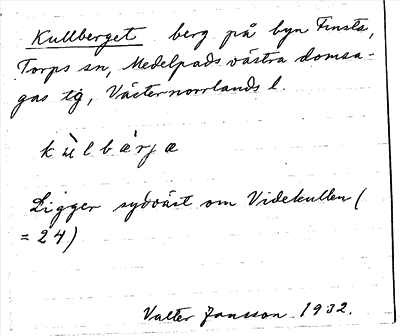 Kullberget berg på byn Finsta,
Torps sn, Medelpads västra domsa-
gas tg, Västernorrlands l.
kùlbärjə
Ligger sydväst om Videkullen (
=24)
Valter Jansson 1932.